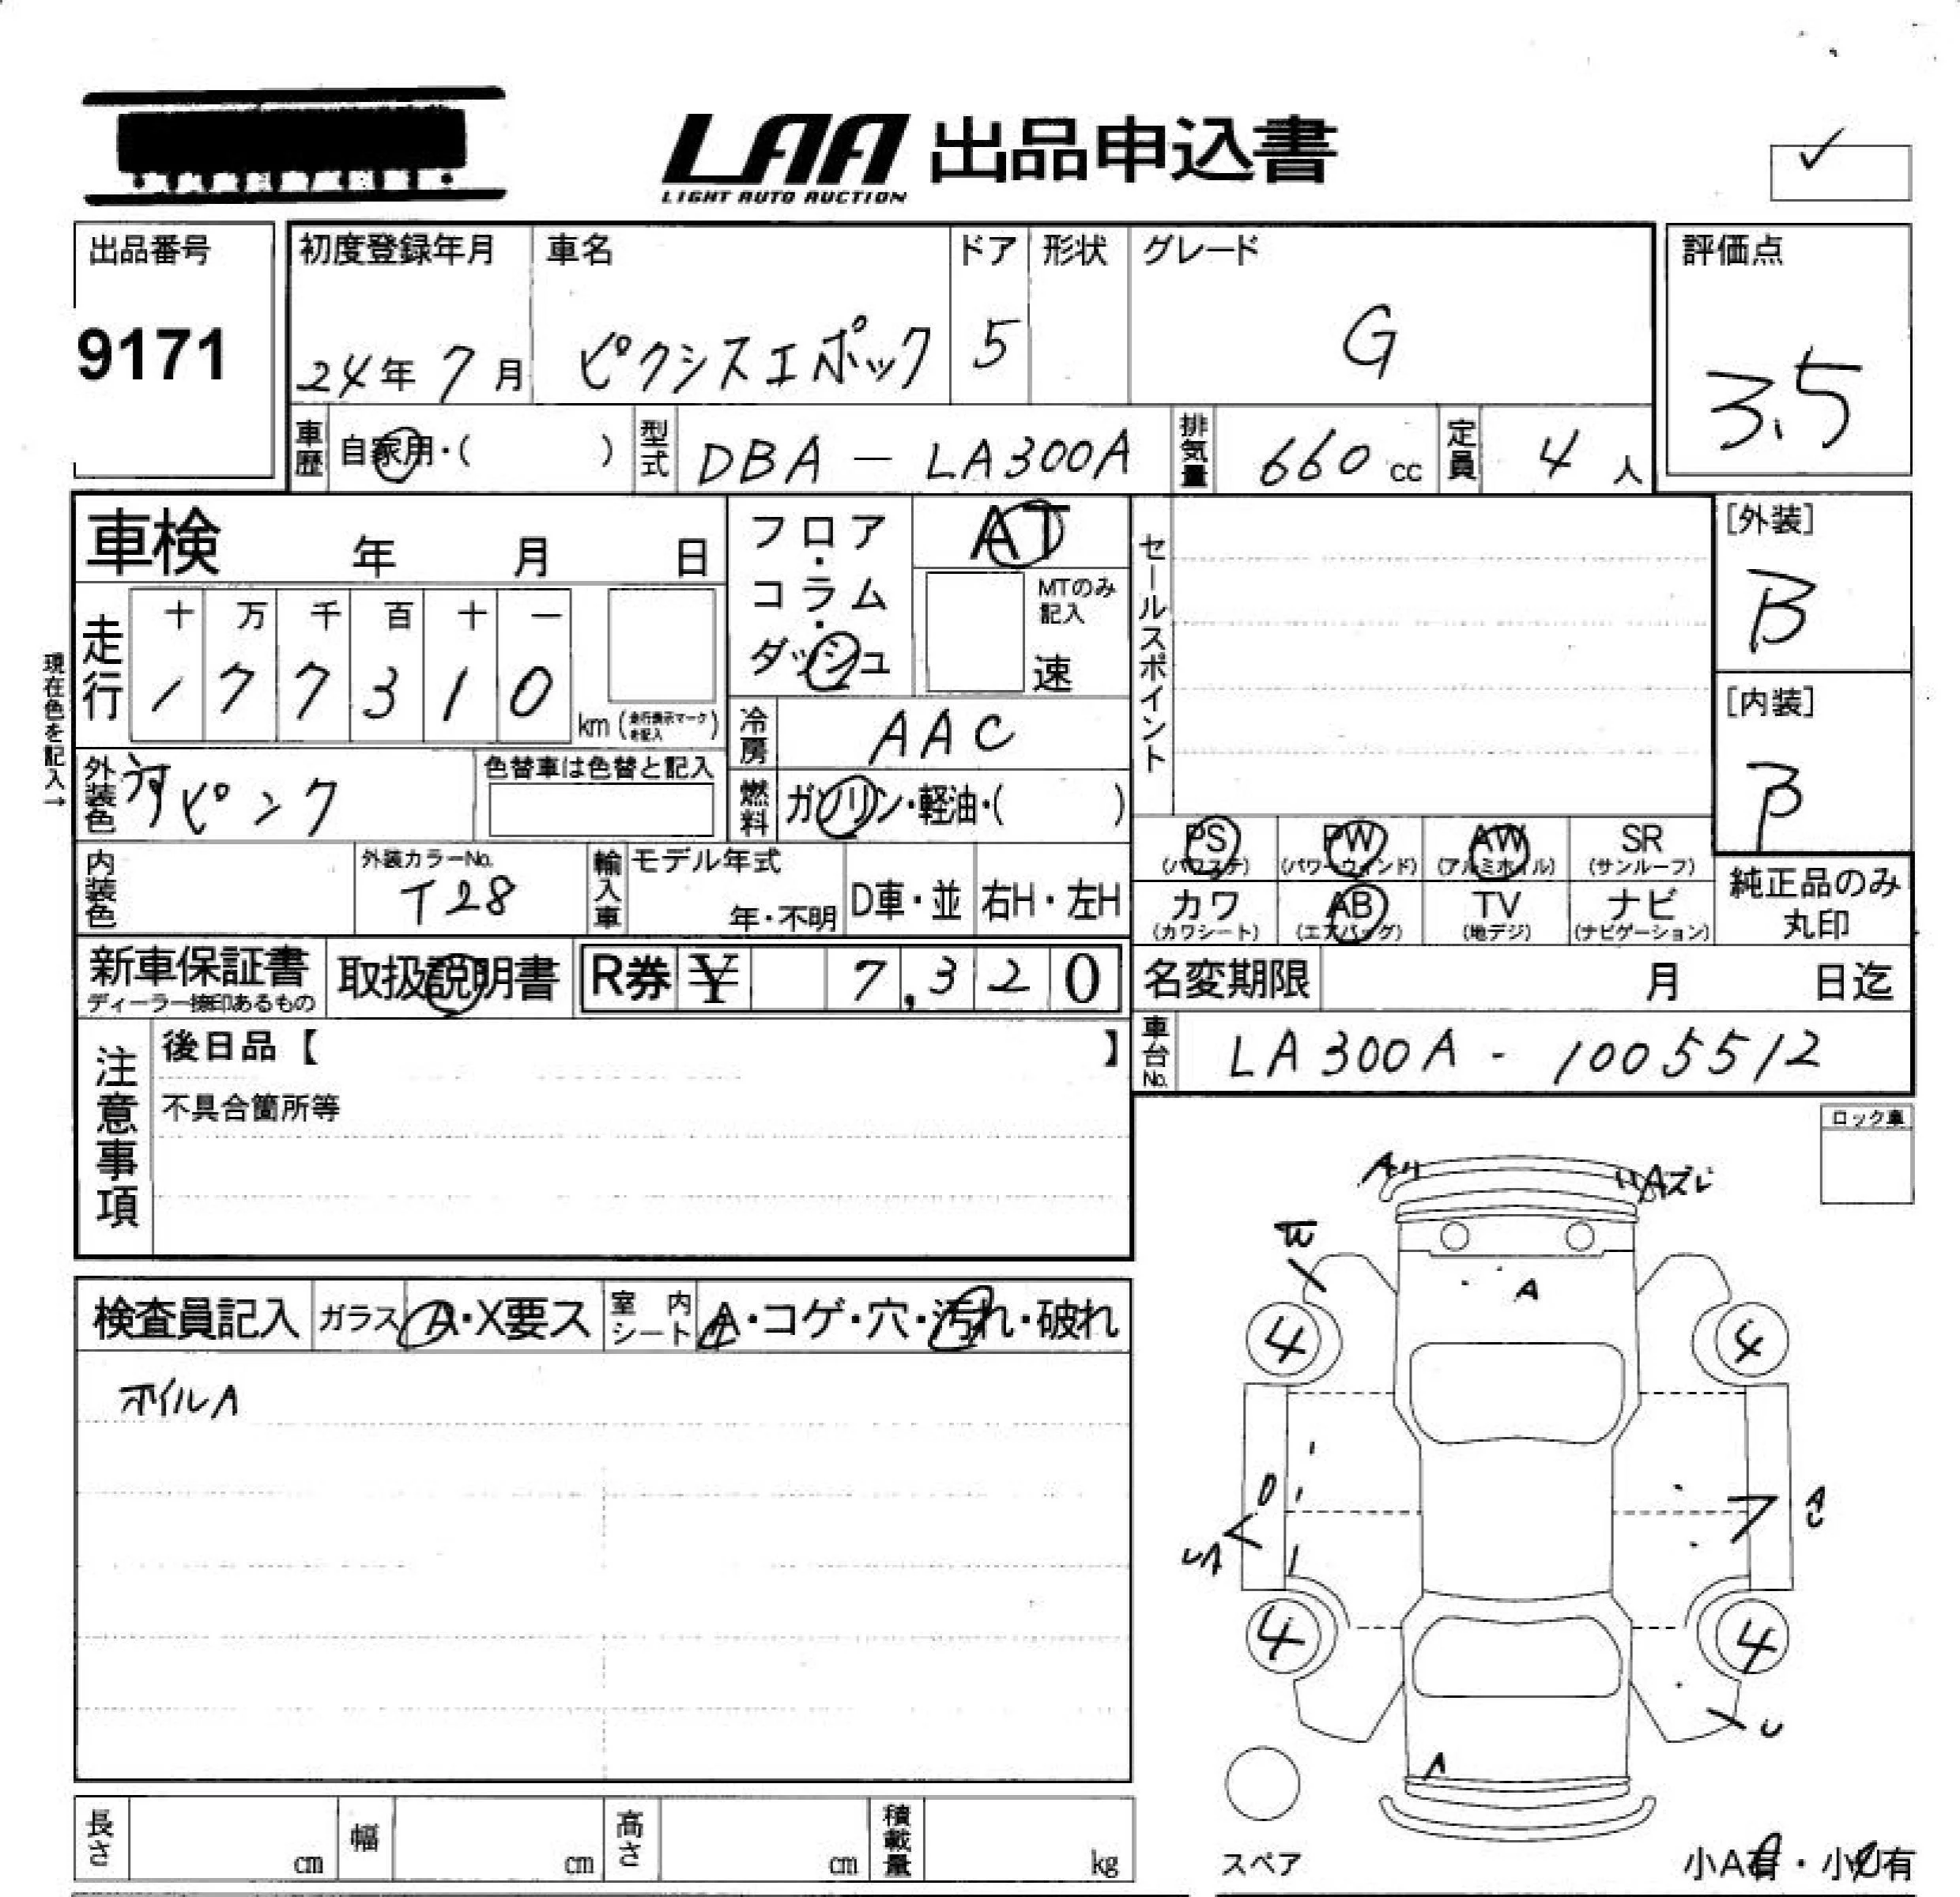 LAA 出品申込書
LIGHT AUTO AUCTION
✓
出品番号
9171
初度登録年月
24年 7月
車名
ピクシスエポック
ドア
5
形状
グレード
G
評価点
3.5
車歴 自家用・( )
型式 DBA - LA300A
排気量 660 cc
定員 4 人
車検 年 月 日
現在色を記入→
走行
十 万 千 百 十 一
1 7 7 3 1 0 km (走行表示マークを記入)
フロア・コラム・ダッシュ
AT
MTのみ記入
速
冷房 AAC
燃料 ガソリン・軽油・( )
外装色 うすピンク
色替車は色替と記入
内装色
外装カラーNo.
T28
輸入車
モデル年式
年・不明
D車・並
右H・左H
セールスポイント
[外装]
B
[内装]
B
PS (パワステ)
PW (パワーウィンド)
AW (アルミホイル)
SR (サンルーフ)
カワ (カワシート)
AB (エアバッグ)
TV (地デジ)
ナビ (ナビゲーション)
純正品のみ丸印
新車保証書
ディーラー捺印あるもの
取扱説明書
R券 ¥ 7,320
名変期限 月 日迄
車台No. LA300A - 1005512
注意事項
後日品【 】
不具合箇所等
ロック車
検査員記入
ガラス A・X要ス
室内シート A・コゲ・穴・汚れ・破れ
ホイルA
A
Aズレ
A
4
4
D
4
4
U
A
スペア
小A有・小U有
長さ cm
幅 cm
高さ cm
積載量 kg